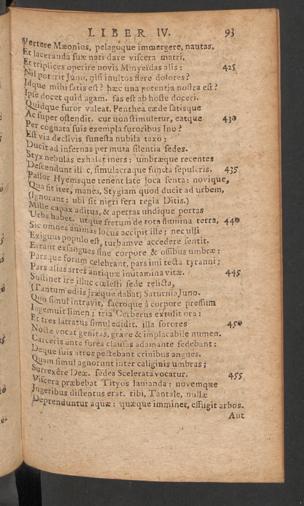 LIBER IV. 93
Vertere Mæonios, pelagoque immergere, nautas,
Et laceranda suæ nati dare viscera matri,
Et triplices operire novis Minyeïdas alis: 425
Nil poterit Juno, nisi inultos flere dolores?
Idque mihi satis est? hæc una potentia nostra est?
Ipse docet quid agam. fas est ab hoste doceri.
Quidque furor valeat, Penthea cæde satisque
Ac super ostendit. cur non stimuletur, eatque 430
Per cognata suis exempla furoribus Ino?
Est via declivis funesta nubila taxo:
Ducit ad infernas per muta silentia sedes.
Styx nebulas exhalat iners: umbræque recentes
Descendunt illic, simulacraque functa sepulcris. 435
Pallor Hyemsque tenent late loca senta; novique,
Qua sit iter, manes, Stygiam quod ducit ad urbem,
Ignorant; ubi sit nigri fera regia Ditis.
Mille capax aditus, & apertas undique portas
Urbs habet. utque fretum de tota flumina terra, 440
Sic omnes animas locus accipit ille; nec ulli
Exiguus populo est, turbamve accedere sentit.
Errant exsangues sine corpore & ossibus umbræ:
Parsque forum celebrant, pars imi tecta tyranni;
Pars alias artes antiquæ imitamina vitæ. 445
Sustinet ire illuc cœlesti sede relicta,
(Tantum odiis iræque dabat) Saturnia Juno.
Quo simul intravit, sacroque à corpore pressum
Ingemuit limen; tria Cerberus extulit ora:
Et tres latratus simul edidit. illa sorores 450
Nocte vocat genitas, grave & implacabile numen.
Carceris ante fores clausas adamante sedebant;
Deque suis atros pectebant crinibus angues.
Quam simul agnorunt inter caliginis umbras;
Surrexere Deæ. sedes Scelerata vocatur. 455
Viscera præbebat Tityos lanianda; novemque
Jugeribus distentus erat. tibi, Tantale, nullæ
Deprenduntur aquæ: quæque imminet, effugit arbos.
Aut